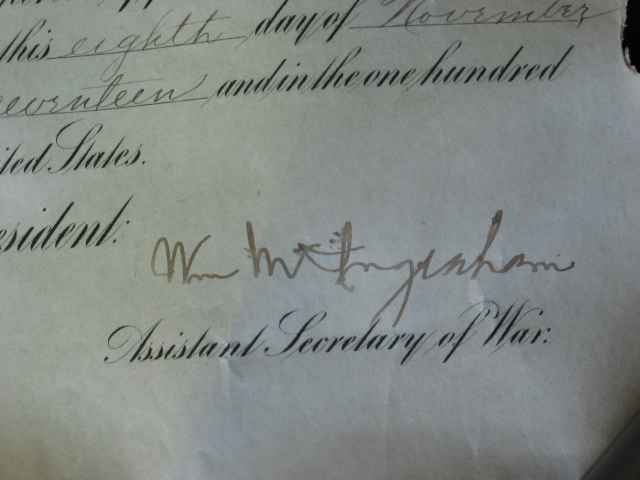 this eighth day of November
seventeen and in the one hundred
ited States.
esident:
Wm M Ingraham
Assistant Secretary of War.